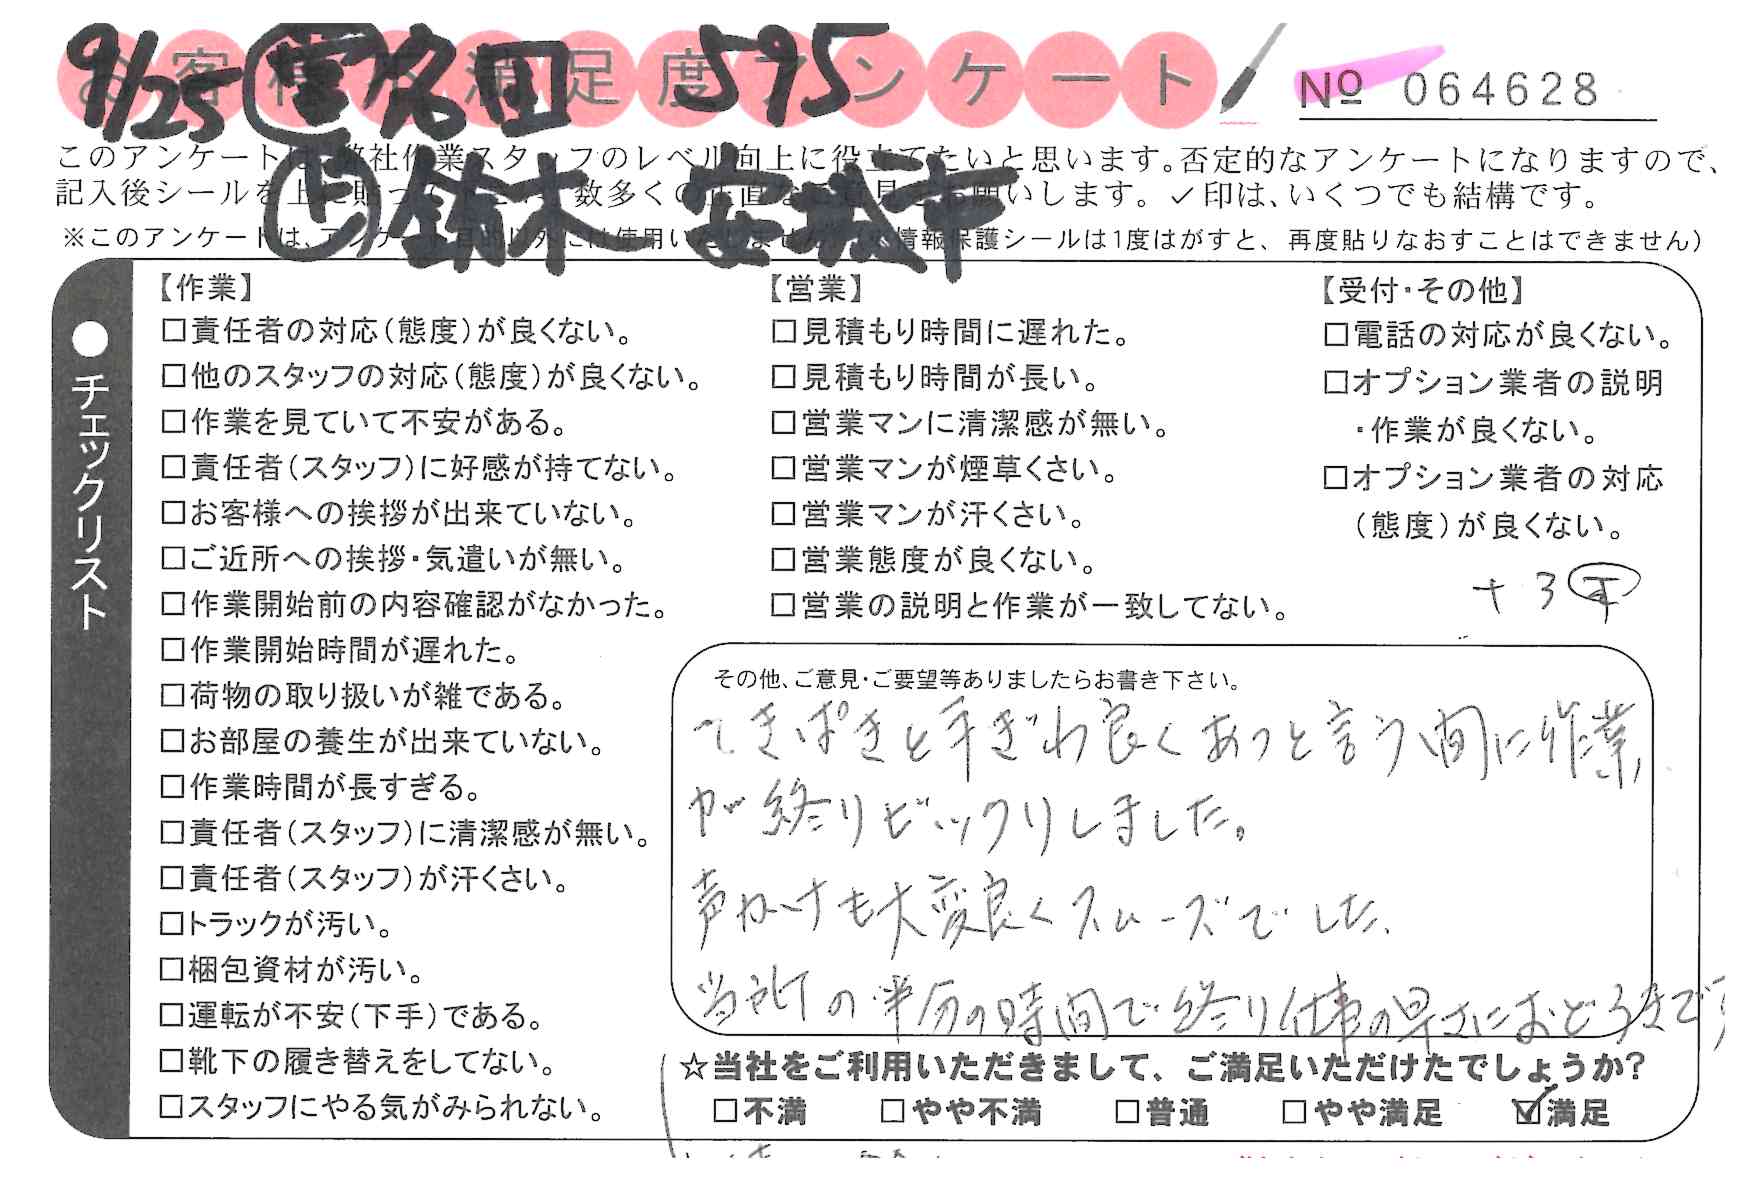 お客様不満足度アンケート
9/25 営 名団 595
№ 064628
このアンケートは、弊社作業スタッフのレベル向上に役立てたいと思います。否定的なアンケートになりますので、
記入後シールを上に貼って下さい。数多くの正直なご意見をお願いします。✓印は、いくつでも結構です。
ト 鈴木 安城市
※このアンケートは、アンケート目的以外には使用いたしません。(※情報保護シールは1度はがすと、再度貼りなおすことはできません)
●チェックリスト
【作業】
□責任者の対応(態度)が良くない。
□他のスタッフの対応(態度)が良くない。
□作業を見ていて不安がある。
□責任者(スタッフ)に好感が持てない。
□お客様への挨拶が出来ていない。
□ご近所への挨拶・気遣いが無い。
□作業開始前の内容確認がなかった。
□作業開始時間が遅れた。
□荷物の取り扱いが雑である。
□お部屋の養生が出来ていない。
□作業時間が長すぎる。
□責任者(スタッフ)に清潔感が無い。
□責任者(スタッフ)が汗くさい。
□トラックが汚い。
□梱包資材が汚い。
□運転が不安(下手)である。
□靴下の履き替えをしてない。
□スタッフにやる気がみられない。
【営業】
□見積もり時間に遅れた。
□見積もり時間が長い。
□営業マンに清潔感が無い。
□営業マンが煙草くさい。
□営業マンが汗くさい。
□営業態度が良くない。
□営業の説明と作業が一致してない。
【受付・その他】
□電話の対応が良くない。
□オプション業者の説明
・作業が良くない。
□オプション業者の対応
(態度)が良くない。
+3
その他、ご意見・ご要望等ありましたらお書き下さい。
てきぱきと手ぎわ良くあっと言う間に作業
が終りビックリしました。
声かけも大変良くスムーズでした。
当初の半分の時間で終り仕事の早さにおどろきです
☆当社をご利用いただきまして、ご満足いただけたでしょうか?
□不満 □やや不満 □普通 □やや満足 ☑満足